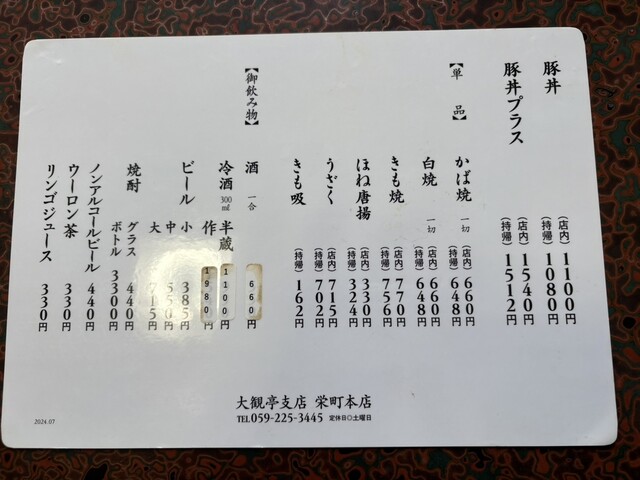 豚丼 (店内) 1100円
(持帰) 1080円
豚丼プラス (店内) 1540円
(持帰) 1512円
【単品】
かば焼 一切 (店内) 660円
(持帰) 648円
白焼 一切 (店内) 660円
(持帰) 648円
きも焼 (店内) 770円
(持帰) 756円
ほね唐揚 (店内) 330円
(持帰) 324円
うざく (店内) 715円
(持帰) 702円
きも吸 (持帰) 162円
【御飲み物】
酒 一合 660円
冷酒 300㎖ 半蔵 1100円
作 1980円
ビール 小 385円
中 550円
大 715円
焼酎 グラス 440円
ボトル 3300円
ノンアルコールビール 440円
ウーロン茶 330円
リンゴジュース 330円
大観亭支店 栄町本店
TEL 059-225-3445 定休日◎土曜日
2024.07